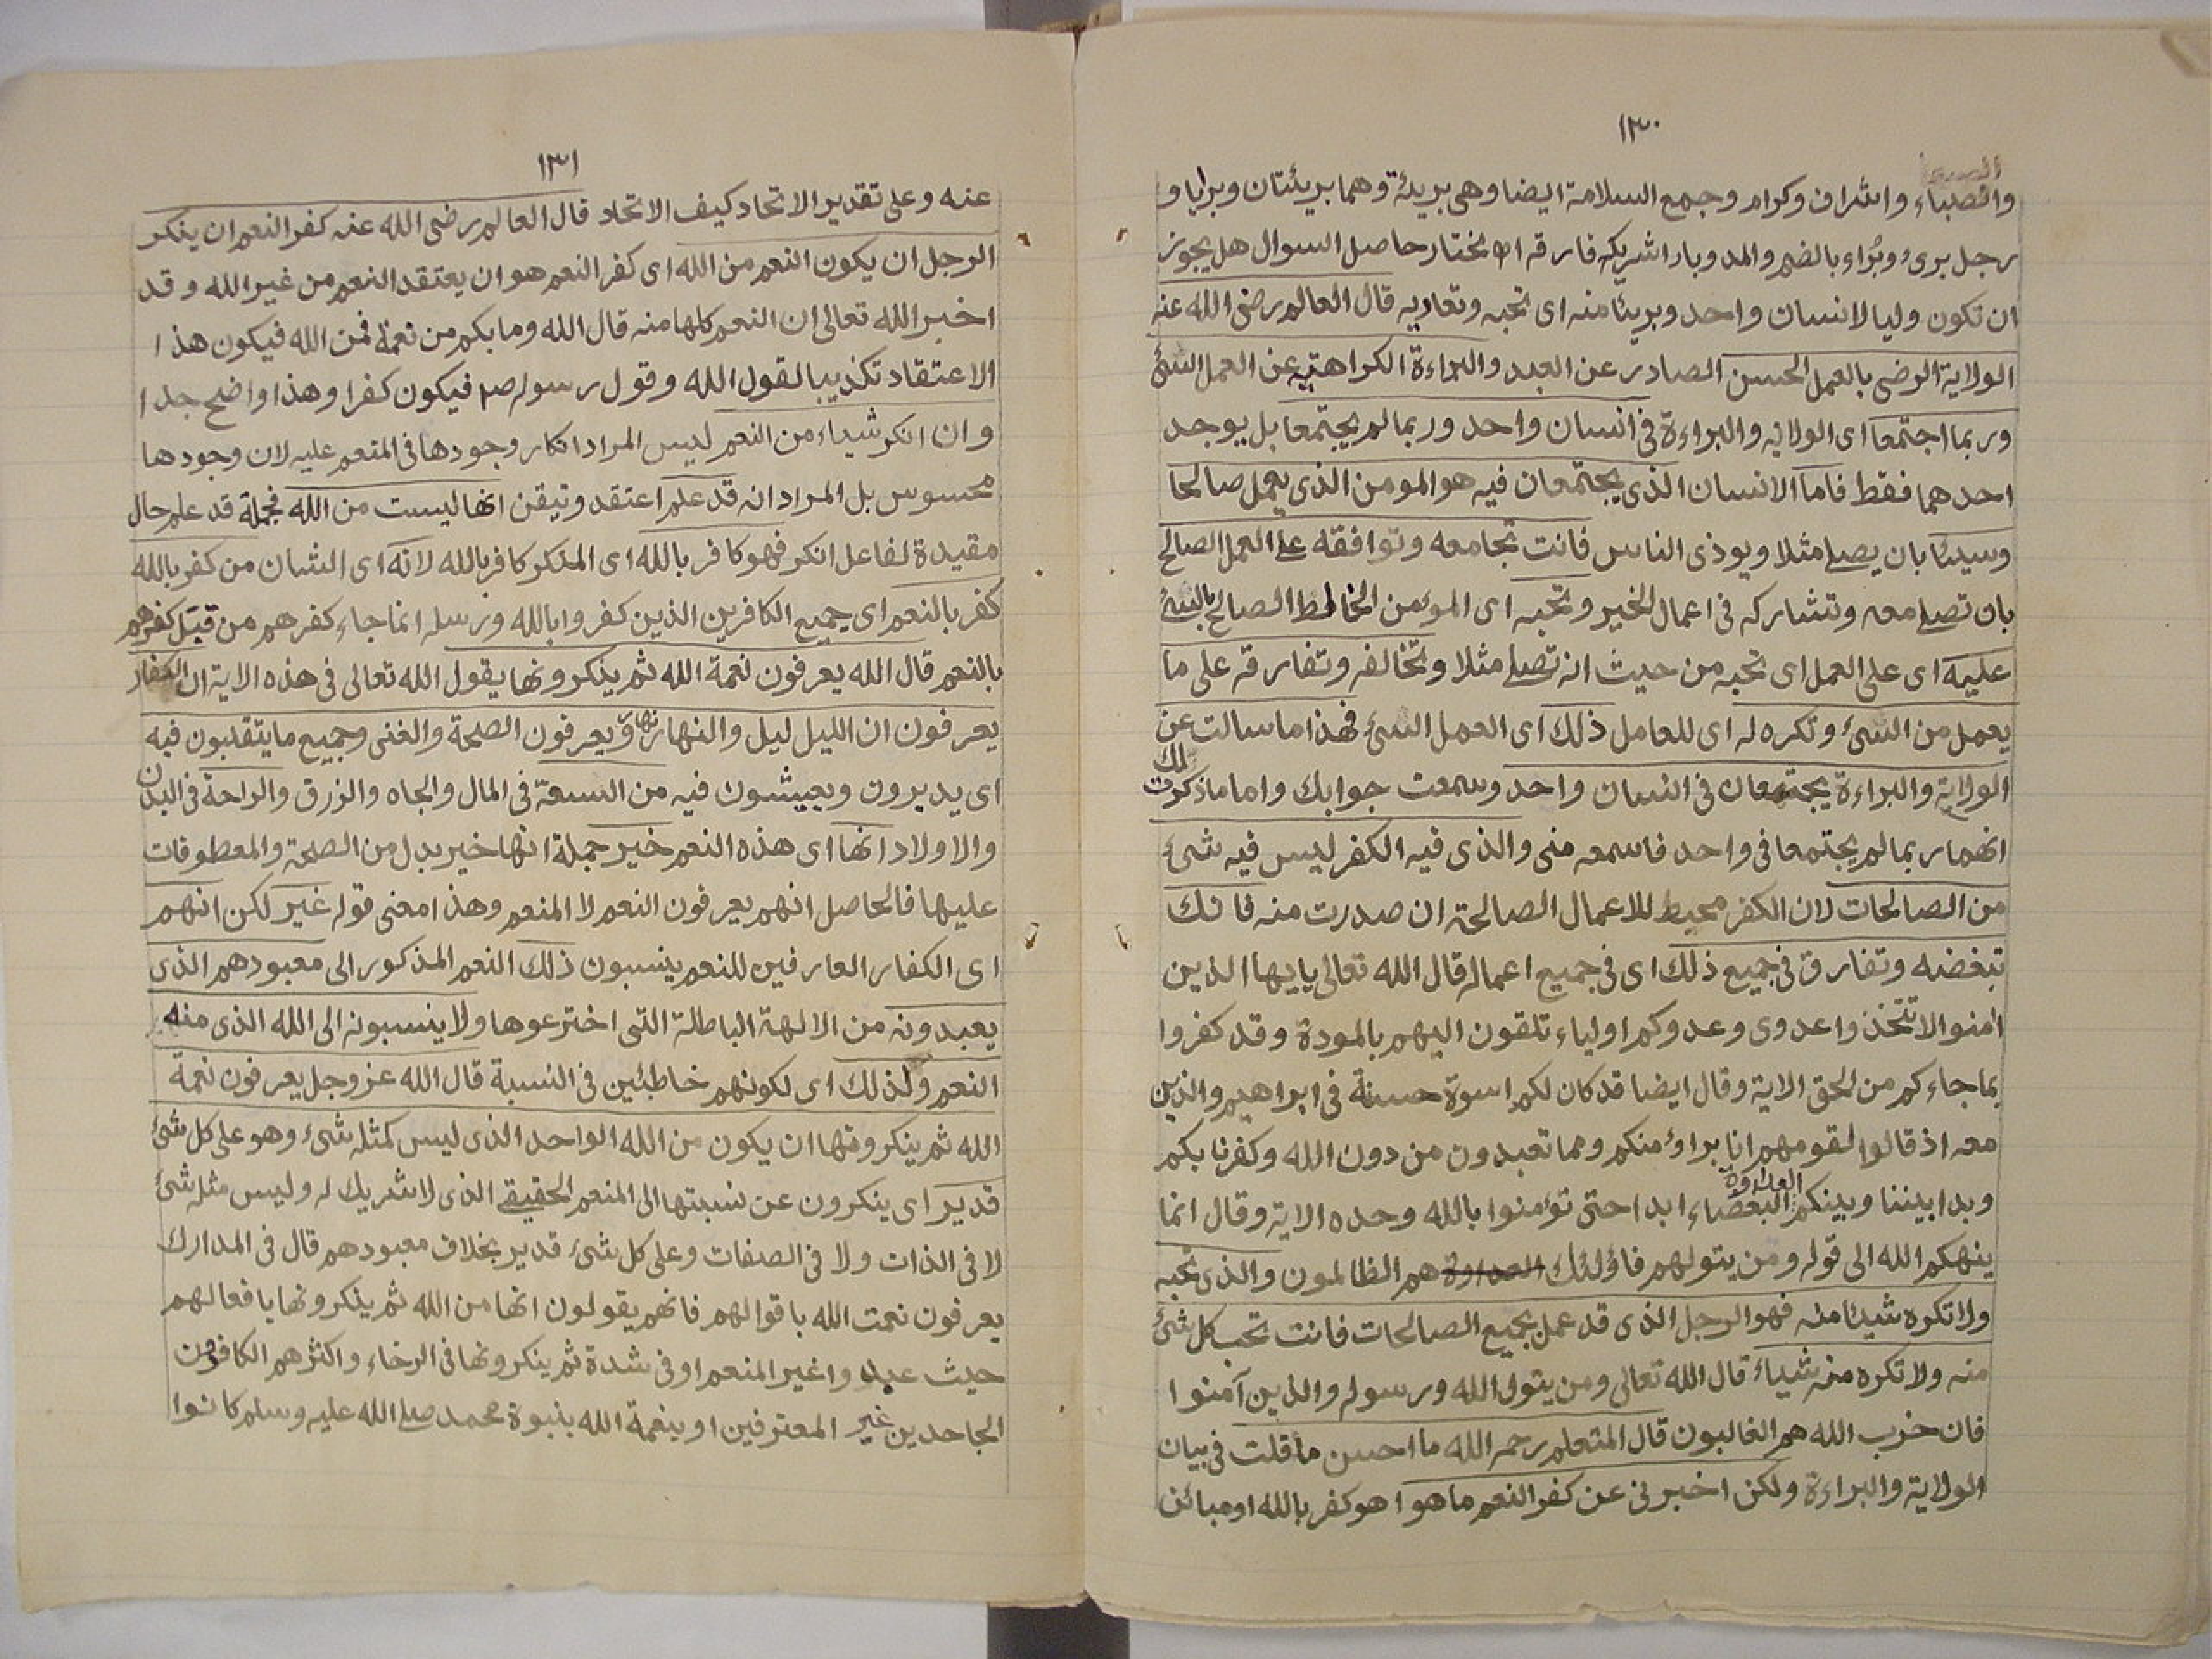 ١٣٠
وانصباء واشراف وكرام وجمع السلامة ايضا وهى بريئة وهما بريئتان وبرايا و
رجل برىء وبُراء بالضم والمد وبارا شريكه فارقه اه مختار حاصل السوال هل يجوز
ان تكون وليا لانسان واحد وبريئا منه اى تحبه وتعاديه قال العالم رضى الله عنه
الولاية الرضى بالعمل الحسن الصادر عن العبد والبراءة الكراهتيه عن العمل السئ
وربما اجتمعا اى الولايه والبراءة فى انسان واحد وربما لم يجتمعا بل يوجد
احدهما فقط فاما الانسان الذى يجتمعان فيه هو المومن الذى يعمل صالحا
وسيئا بان يصلے مثلا ويوذى الناس فانت تجامعه وتوافقه علے العمل الصالح
بان تصلے معه وتشاركه فى اعمال الخير وتحبه اى المؤمن المخالط الصالح بالسئ
عليه اى على العمل اى تحبه من حيث انه تصلے مثلا وتخالفه وتفارقه على ما
يعمل من السئ وتكره له اى للعامل ذلك اى العمل السئ فهذا ما سالت عن
الولاية والبراءة يجتمعان فى انسان واحد وسمعت جوابك واما ما ذكرت لك
انهما ربما لم يجتمعا فى واحد فاسمعه منى والذى فيه الكفر ليس فيه شئ
من الصالحات لان الكفر محيط للاعمال الصالحة ان صدرت منه فانك
تبغضه وتفارق فى جميع ذلك اى فى جميع اعماله قال الله تعالى يايها الذين
امنوا لا تتخذوا عدوى وعدوكم اولياء تلقون اليهم بالمودة وقد كفروا
بما جاءكم من الحق الاية وقال ايضا قد كان لكم اسوة حسنة فى ابراهيم والذين
معه اذ قالوا لقومهم انا براؤ منكم ومما تعبدون من دون الله وكفرنا بكم
وبدا بيننا وبينكم العداوة البغضاء ابدا حتى تؤمنوا بالله وحده الاية وقال انما
ينهكم الله الى قوله ومن يتولهم فاؤلئك العداوة هم الظالمون والذى تحبه
ولا تكره شيئا منه فهو الرجل الذى قد عمل بجميع الصالحات فانت تحب كل شئ
منه ولا تكره منه شياء قال الله تعالى ومن يتول الله ورسوله والذين آمنوا
فان حزب الله هم الغالبون قال المتعلم رحمه الله ما احسن ما قلت فى بيان
الولاية والبراءة ولكن اخبرنى عن كفر النعم ما هو اهو كفر بالله او مبائن
١٣١
عنه وعلى تقدير الاتحاد كيف الاتحاد قال العالم رضى الله عنه كفر النعم ان ينكر
الرجل ان يكون النعم من الله اى كفر النعم هو ان يعتقد النعم من غير الله وقد
اخبر الله تعالى ان النعم كلها منه قال الله وما بكم من نعمة فمن الله فيكون هذا
الاعتقاد تكذيبا لقول الله وقول رسوله صم فيكون كفرا وهذا واضح جدا
وان انكر شياء من النعم ليس المراد انكار وجودها فى المنعم عليه لان وجودها
محسوس بل المراد انه قد علم اعتقد وتيقن انها ليست من الله فجملة قد علم حال
مقيدة لفاعل انكر فهو كافر بالله اى المنكر كافر بالله لانه اى الشان من كفر بالله
كفر بالنعم اى جميع الكافرين الذين كفروا بالله ورسله انما جاء كفرهم من قبل كفرهم
بالنعم قال الله يعرفون نعمة الله ثم ينكرونها يقول الله تعالى فى هذه الاية ان الكفار
يعرفون ان الليل ليل والنهار نهار ويعرفون الصحة والغنى وجميع ما يتقلبون فيه
اى يديرون ويعيشون فيه من السعة فى المال والجاه والزرق والراحة فى البدن
والاولاد انها اى هذه النعم خير جملة انها خير بدل من الصحة والمعطوفات
عليها فالحاصل انهم يعرفون النعم لا المنعم وهذا معنى قوله غير لكن انهم
اى الكفار العارفين للنعم ينسبون ذلك النعم المذكور الى معبودهم الذى
يعبدونه من الالهة الباطلة التى اخترعوها ولا ينسبونه الى الله الذى منه
النعم ولذلك اى لكونهم خاطئين فى النسبة قال الله عز وجل يعرفون نعمة
الله ثم ينكرونها ان يكون من الله الواحد الذى ليس كمثله شئ وهو على كل شئ
قدير اى ينكرون عن نسبتها الى المنعم الحقيقے الذى لا شريك له وليس مثله شئ
لا فى الذات ولا فى الصفات وعلى كل شئ قدير بخلاف معبودهم قال فى المدارك
يعرفون نعمت الله باقوالهم فانهم يقولون انها من الله ثم ينكرونها بافعالهم
حيث عبدوا غير المنعم او فى شدة ثم ينكرونها فى الرخاء واكثرهم الكافرون
الجاحدين غير المعترفين او بنعمة الله بنبوة محمد صلے الله عليه وسلم كانوا